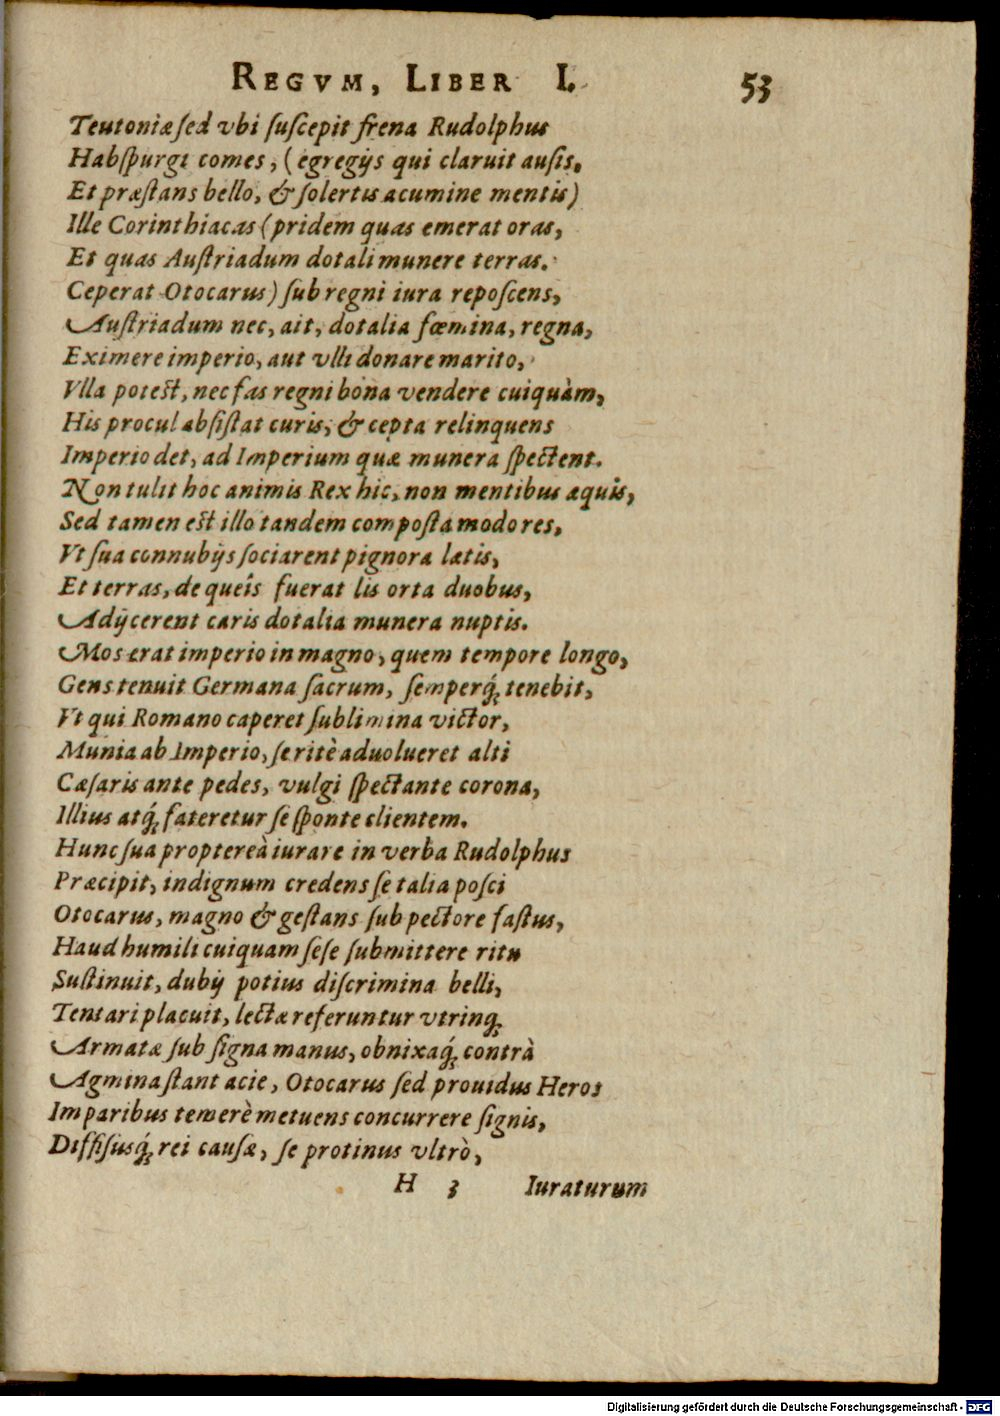 REGVM, LIBER I. 53
Teutoniæ sed vbi suscepit frena Rudolphus
Habspurgi comes, (egregijs qui claruit ausis.
Et præstans bello, & solertis acumine mentis)
Ille Corinthiacas (pridem quas emerat oras,
Et quas Austriadum dotali munere terras.
Ceperat Otocarus) sub regni iura reposcens,
Austriadum nec, ait, dotalia fœmina, regna,
Eximere imperio, aut vlli donare marito,
Vlla potest, nec fas regni bona vendere cuiquàm,
His procul absistat curis, & cepta relinquens
Imperio det, ad Imperium quæ munera spectent.
Non tulit hoc animis Rex hic, non mentibus æquis,
Sed tamen est illo tandem composta modo res,
Vt sua connubijs sociarent pignora lætis,
Et terras, de queîs fuerat lis orta duobus,
Adijcerent caris dotalia munera nuptis.
Mos erat imperio in magno, quem tempore longo,
Gens tenuit Germana sacrum, semperq́; tenebit,
Vt qui Romano caperet sublimina victor,
Munia ab Imperio, se ritè aduolueret alti
Cæsaris ante pedes, vulgi spectante corona,
Illius atq́; fateretur se sponte clientem.
Hunc sua proptereà iurare in verba Rudolphus
Præcipit, indignum credens se talia posci
Otocarus, magno & gestans sub pectore fastus,
Haud humili cuiquam sese submittere ritu
Sustinuit, dubij potius discrimina belli,
Tentari placuit, lectæ referuntur vtrinq;
Armatæ sub signa manus, obnixaq́; contrà
Agmina stant acie, Otocarus sed prouidus Heros
Imparibus temerè metuens concurrere signis,
Diffisusq́; rei causæ, se protinus vltrò,
H 3 Iuraturum
Digitalisierung gefördert durch die Deutsche Forschungsgemeinschaft - DFG